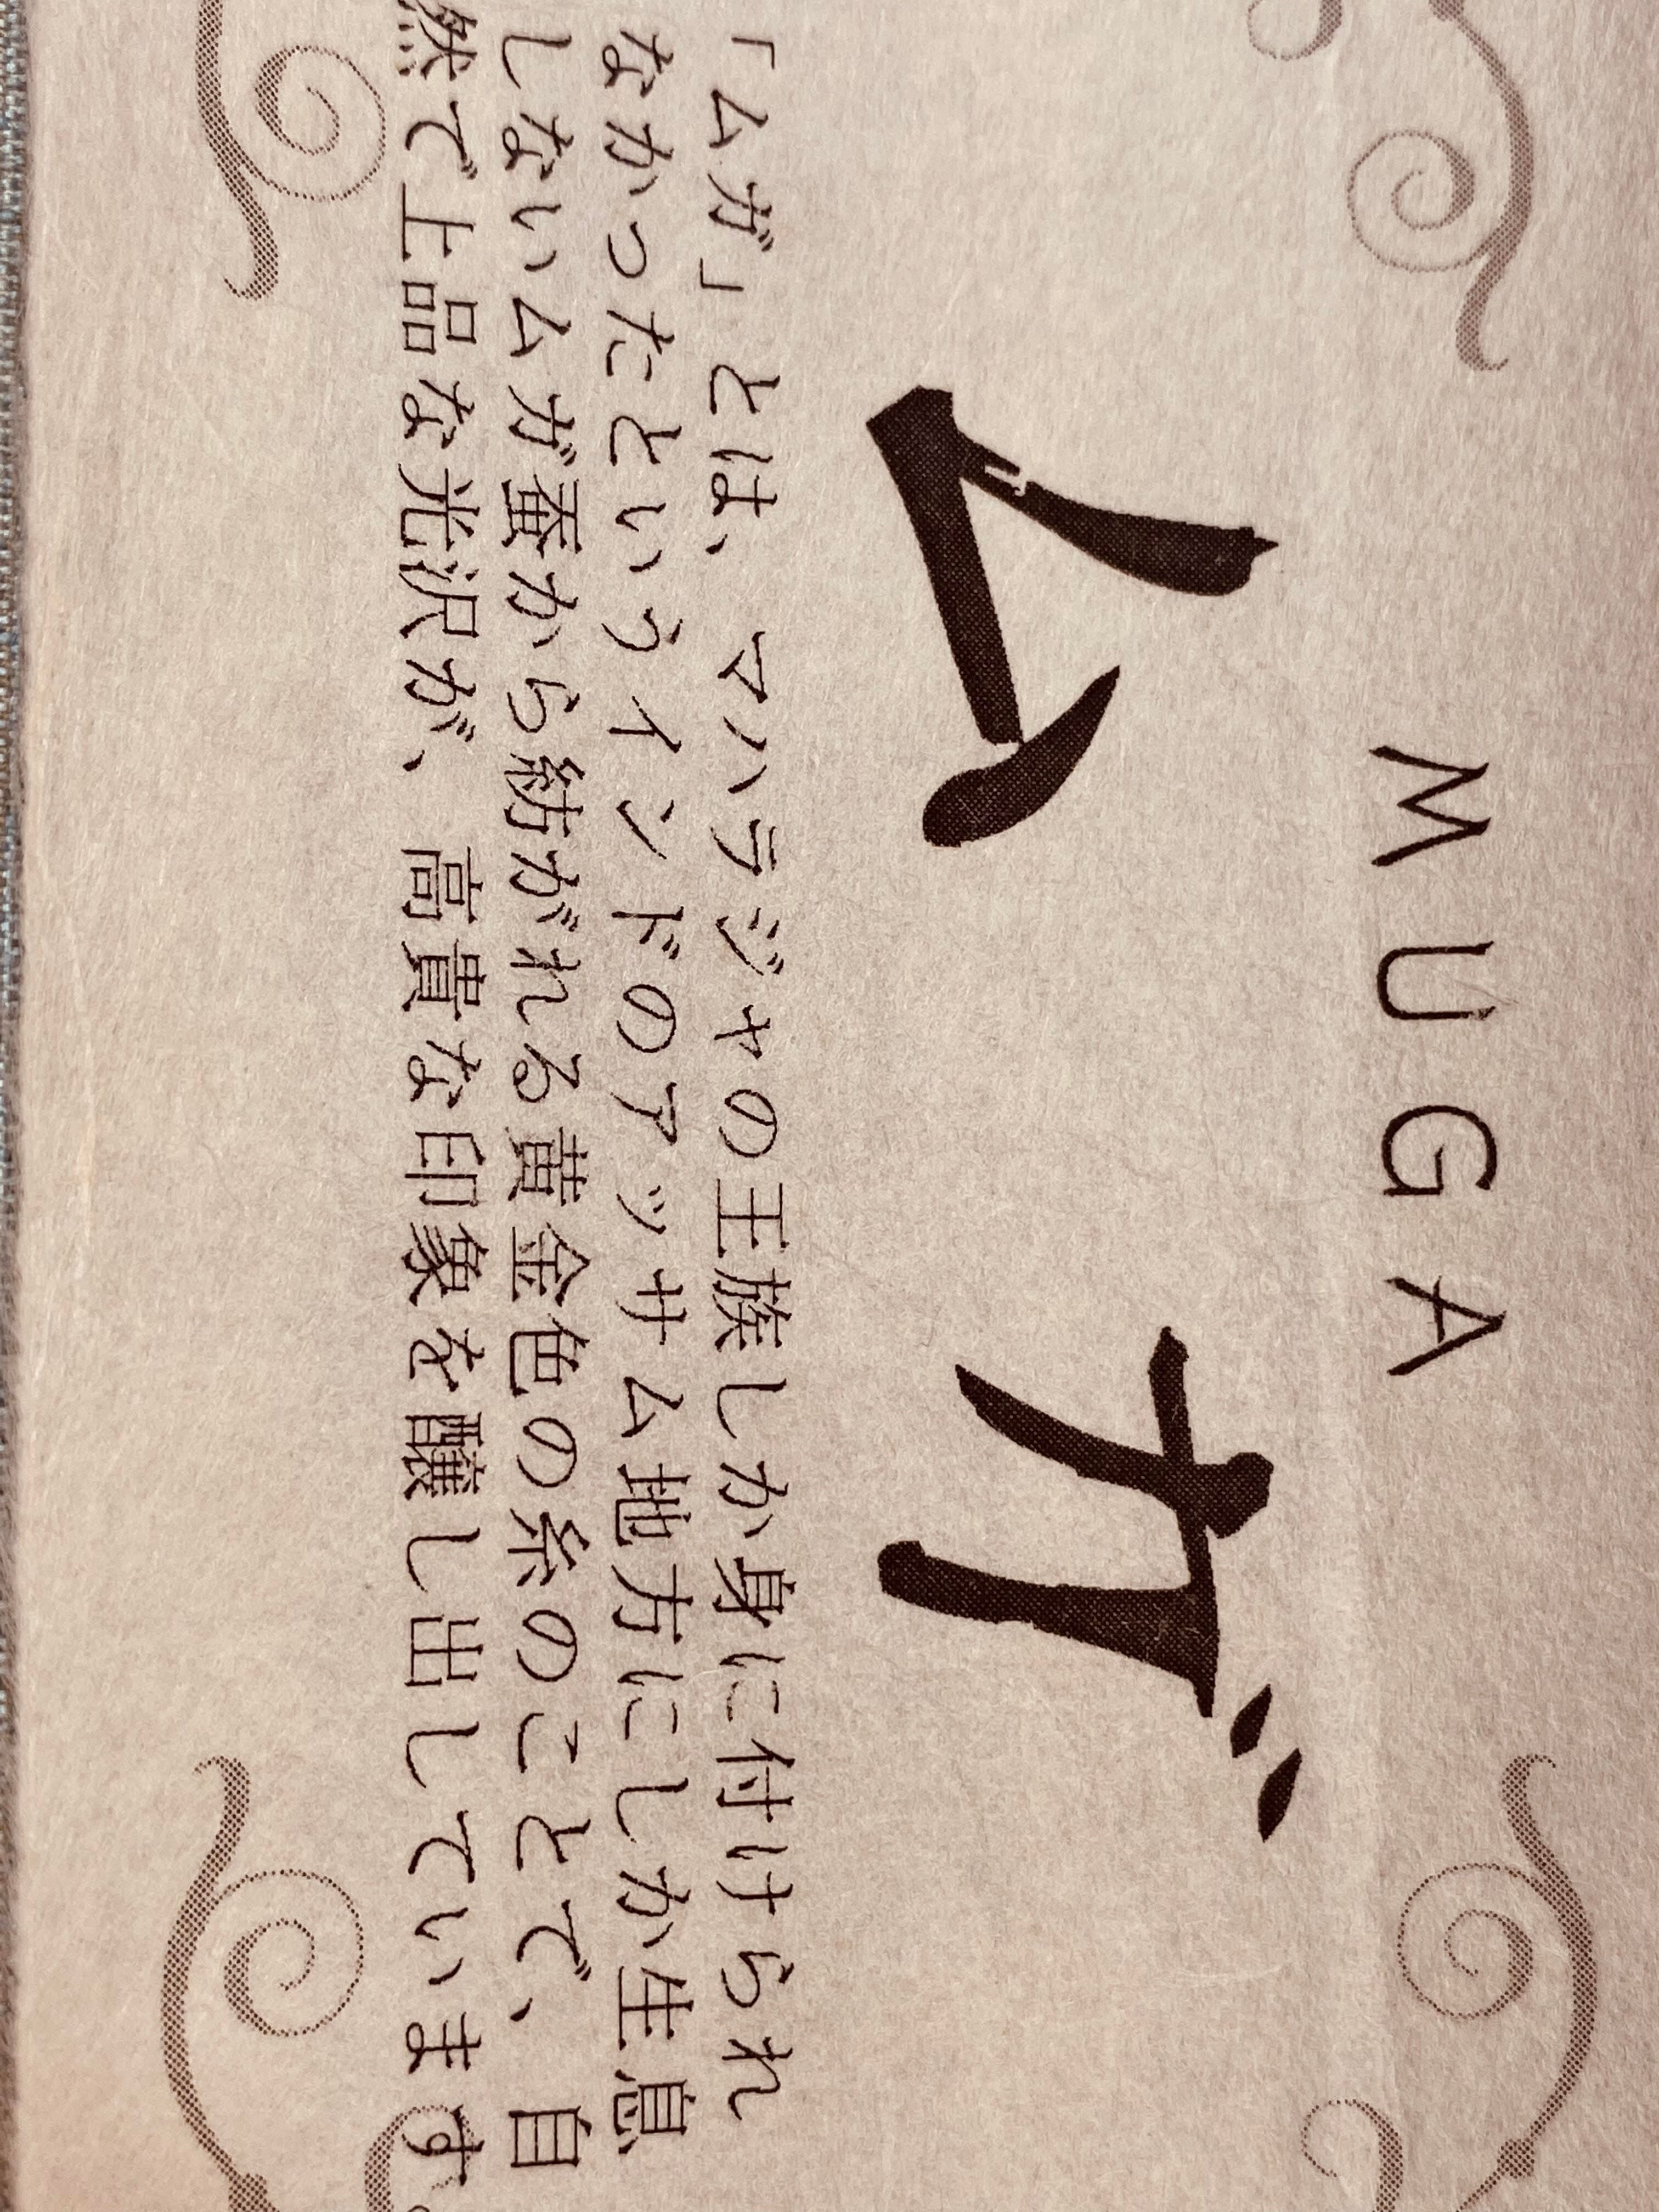 MUGA
ムガ
「ムガ」とは、マハラジャの王族しか身に付けられ
なかったというインドのアッサム地方にしか生息
しないムガ蚕から紡がれる黄金色の糸のことで、自
然で上品な光沢が、高貴な印象を醸し出しています。